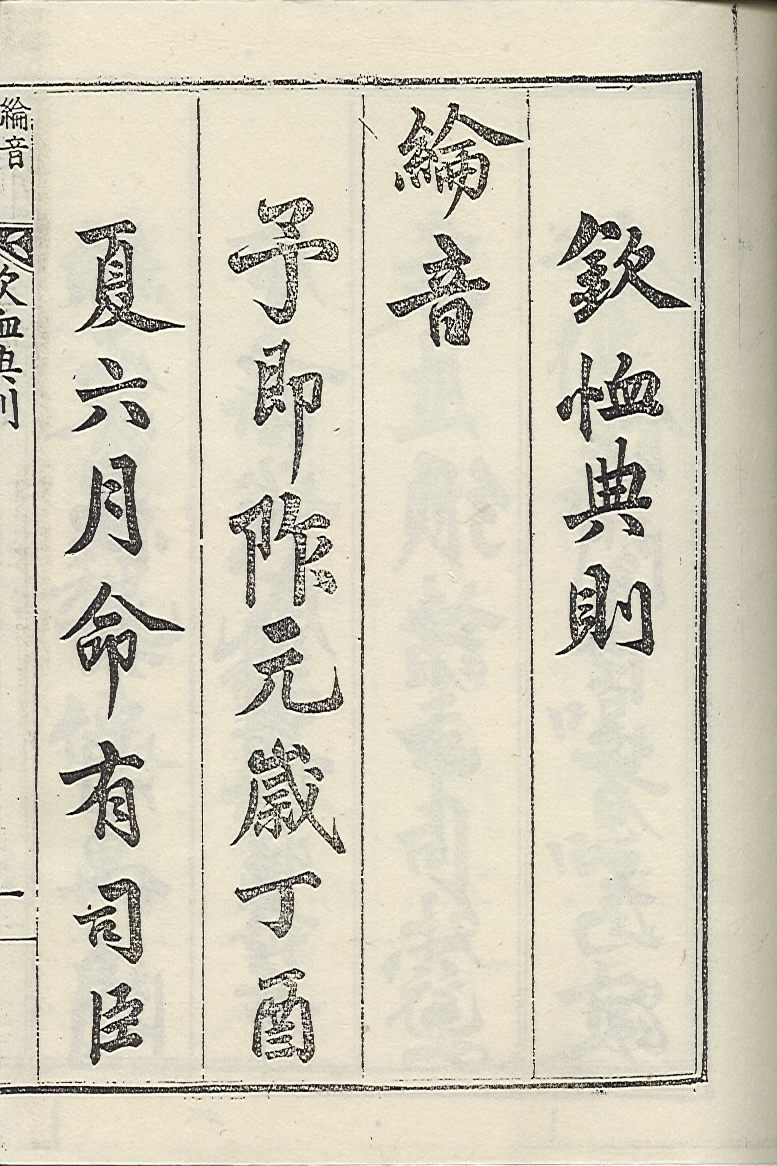 欽恤典則
綸音
予即阼元歲丁酉
夏六月命有司臣
綸音 欽恤典則 一